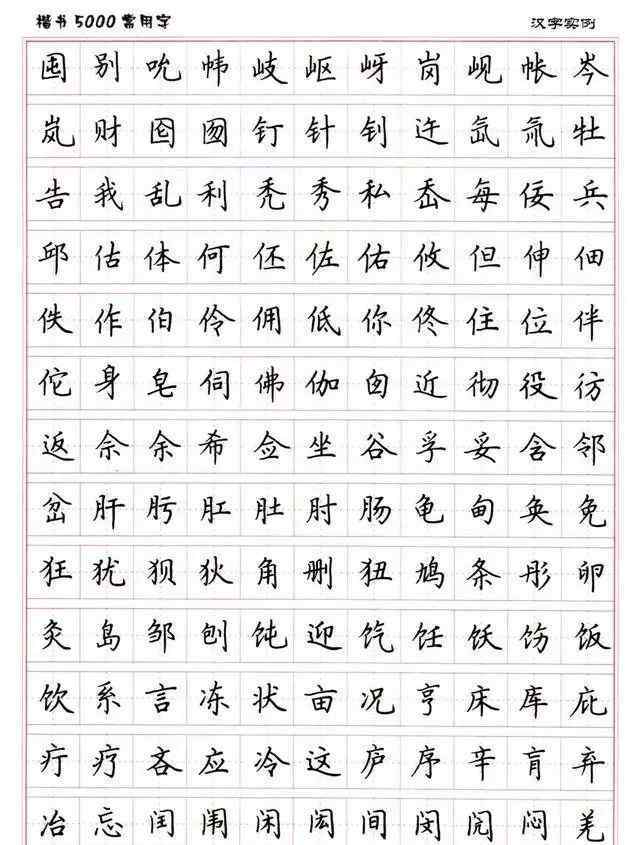 楷书5000常用字 汉字实例
囤别吮帏岐岖岈岗岘帐岑
岚财囵囫钉针钊迕氙氚牡
告我乱利秃秀私岙每佞兵
邱估体何伾佐佑攸但伸佃
佚作伯伶佣低你佟住位伴
佗身皂伺佛伽囱近彻役彷
返佘余希佥坐谷孚妥含邻
岔肝肟肛肚肘肠龟甸奂免
狂犹狈狄角删狃鸠条彤卵
灸岛邹刨饨迎饩饪饫饬饭
饮系言冻状亩况亨床库庇
疔疗吝应冷这庐序辛肓弃
冶忘闰闱闲闳间闵闶闷羌